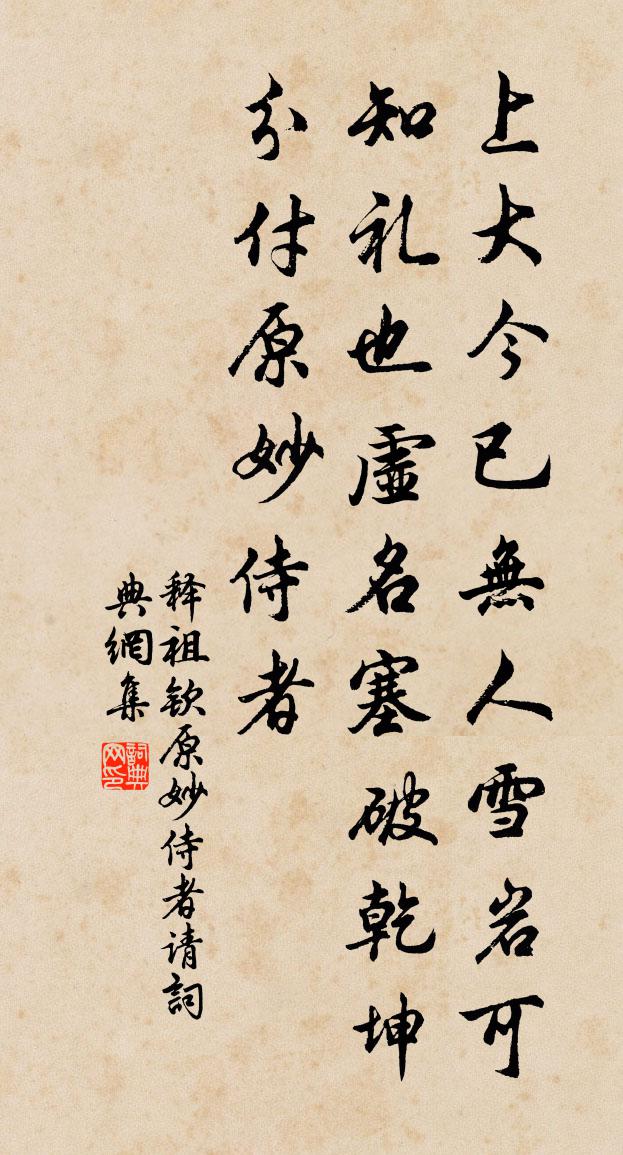 上大今已無人雪岩可
知礼也虛名塞破乾坤
分付原妙侍者
释祖钦原妙侍者请詞
典網集
詞典
网印